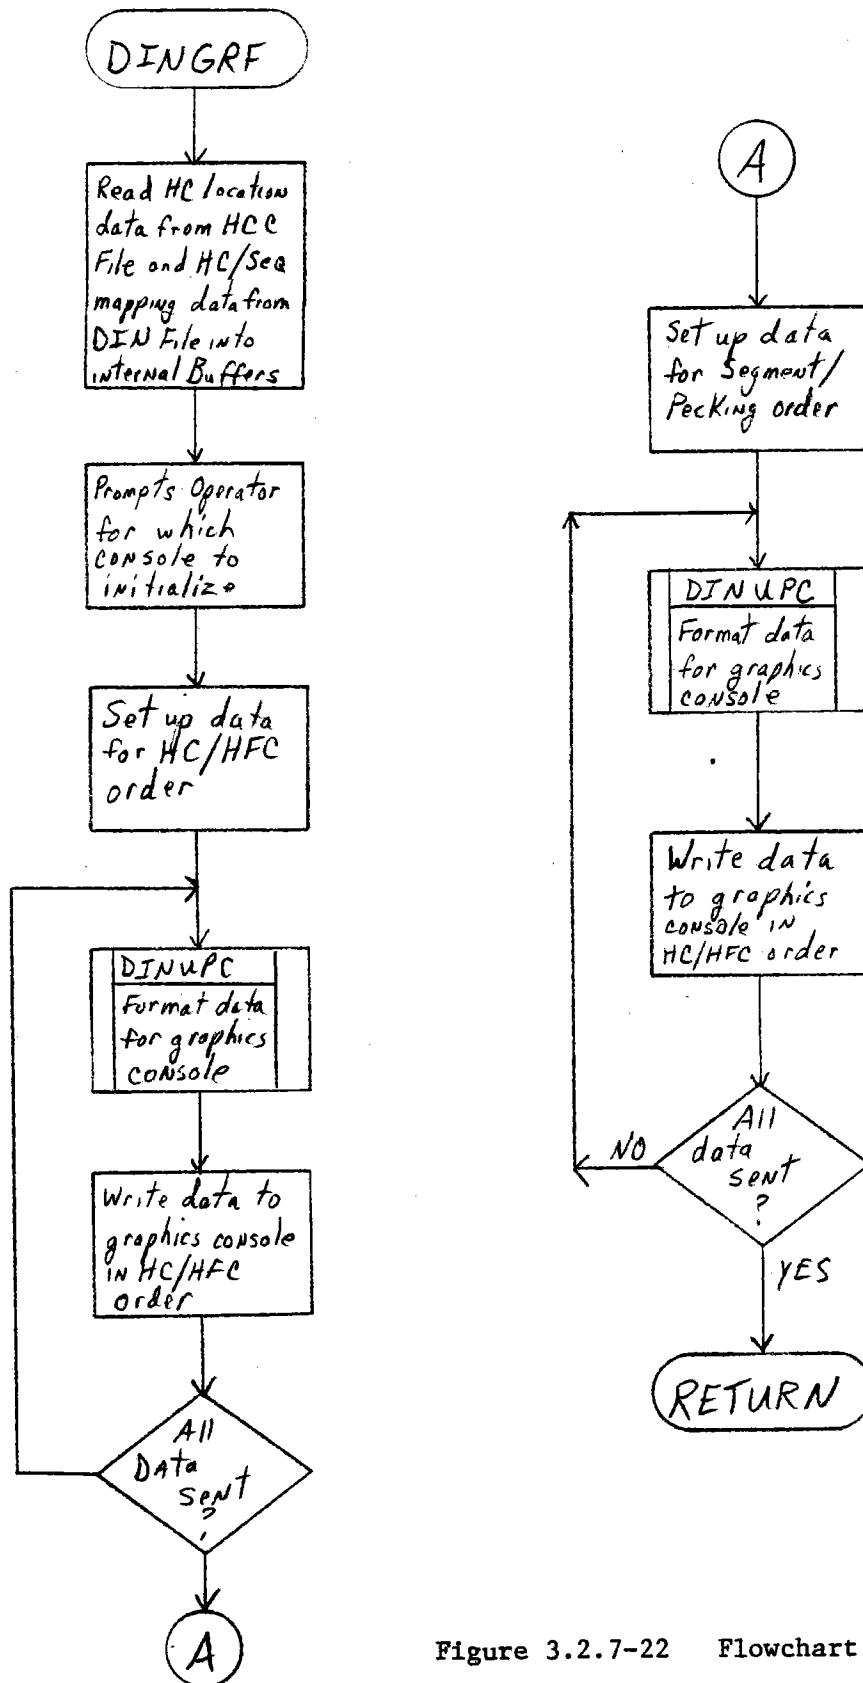 DINGRF
Read HC location
data from HCC
File and HC/Seq
mapping data from
DIN File into
internal Buffers
Prompts Operator
for which
console to
initialize
Set up data
for HC/HFC
order
DINUPC
Format data
for graphics
console
Write data to
graphics console
IN HC/HFC
order
All
Data
sent
?
A
A
Set up data
for Segment/
Pecking order
DINUPC
Format data
for graphics
console
Write data
to graphics
console IN
HC/HFC order
All
data
sent
?
NO
YES
RETURN
Figure 3.2.7-22 Flowchart